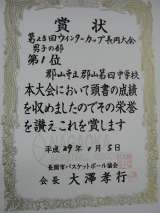 賞状
第25回ウインターカップ長岡大会
男子の部
第1位
郡山市立郡山第四中学校
本大会において頭書の成績
を収めましたのでその栄誉
を讃えこれを賞します
平成29年1月5日
長岡市バスケットボール協会
会長 大澤孝行